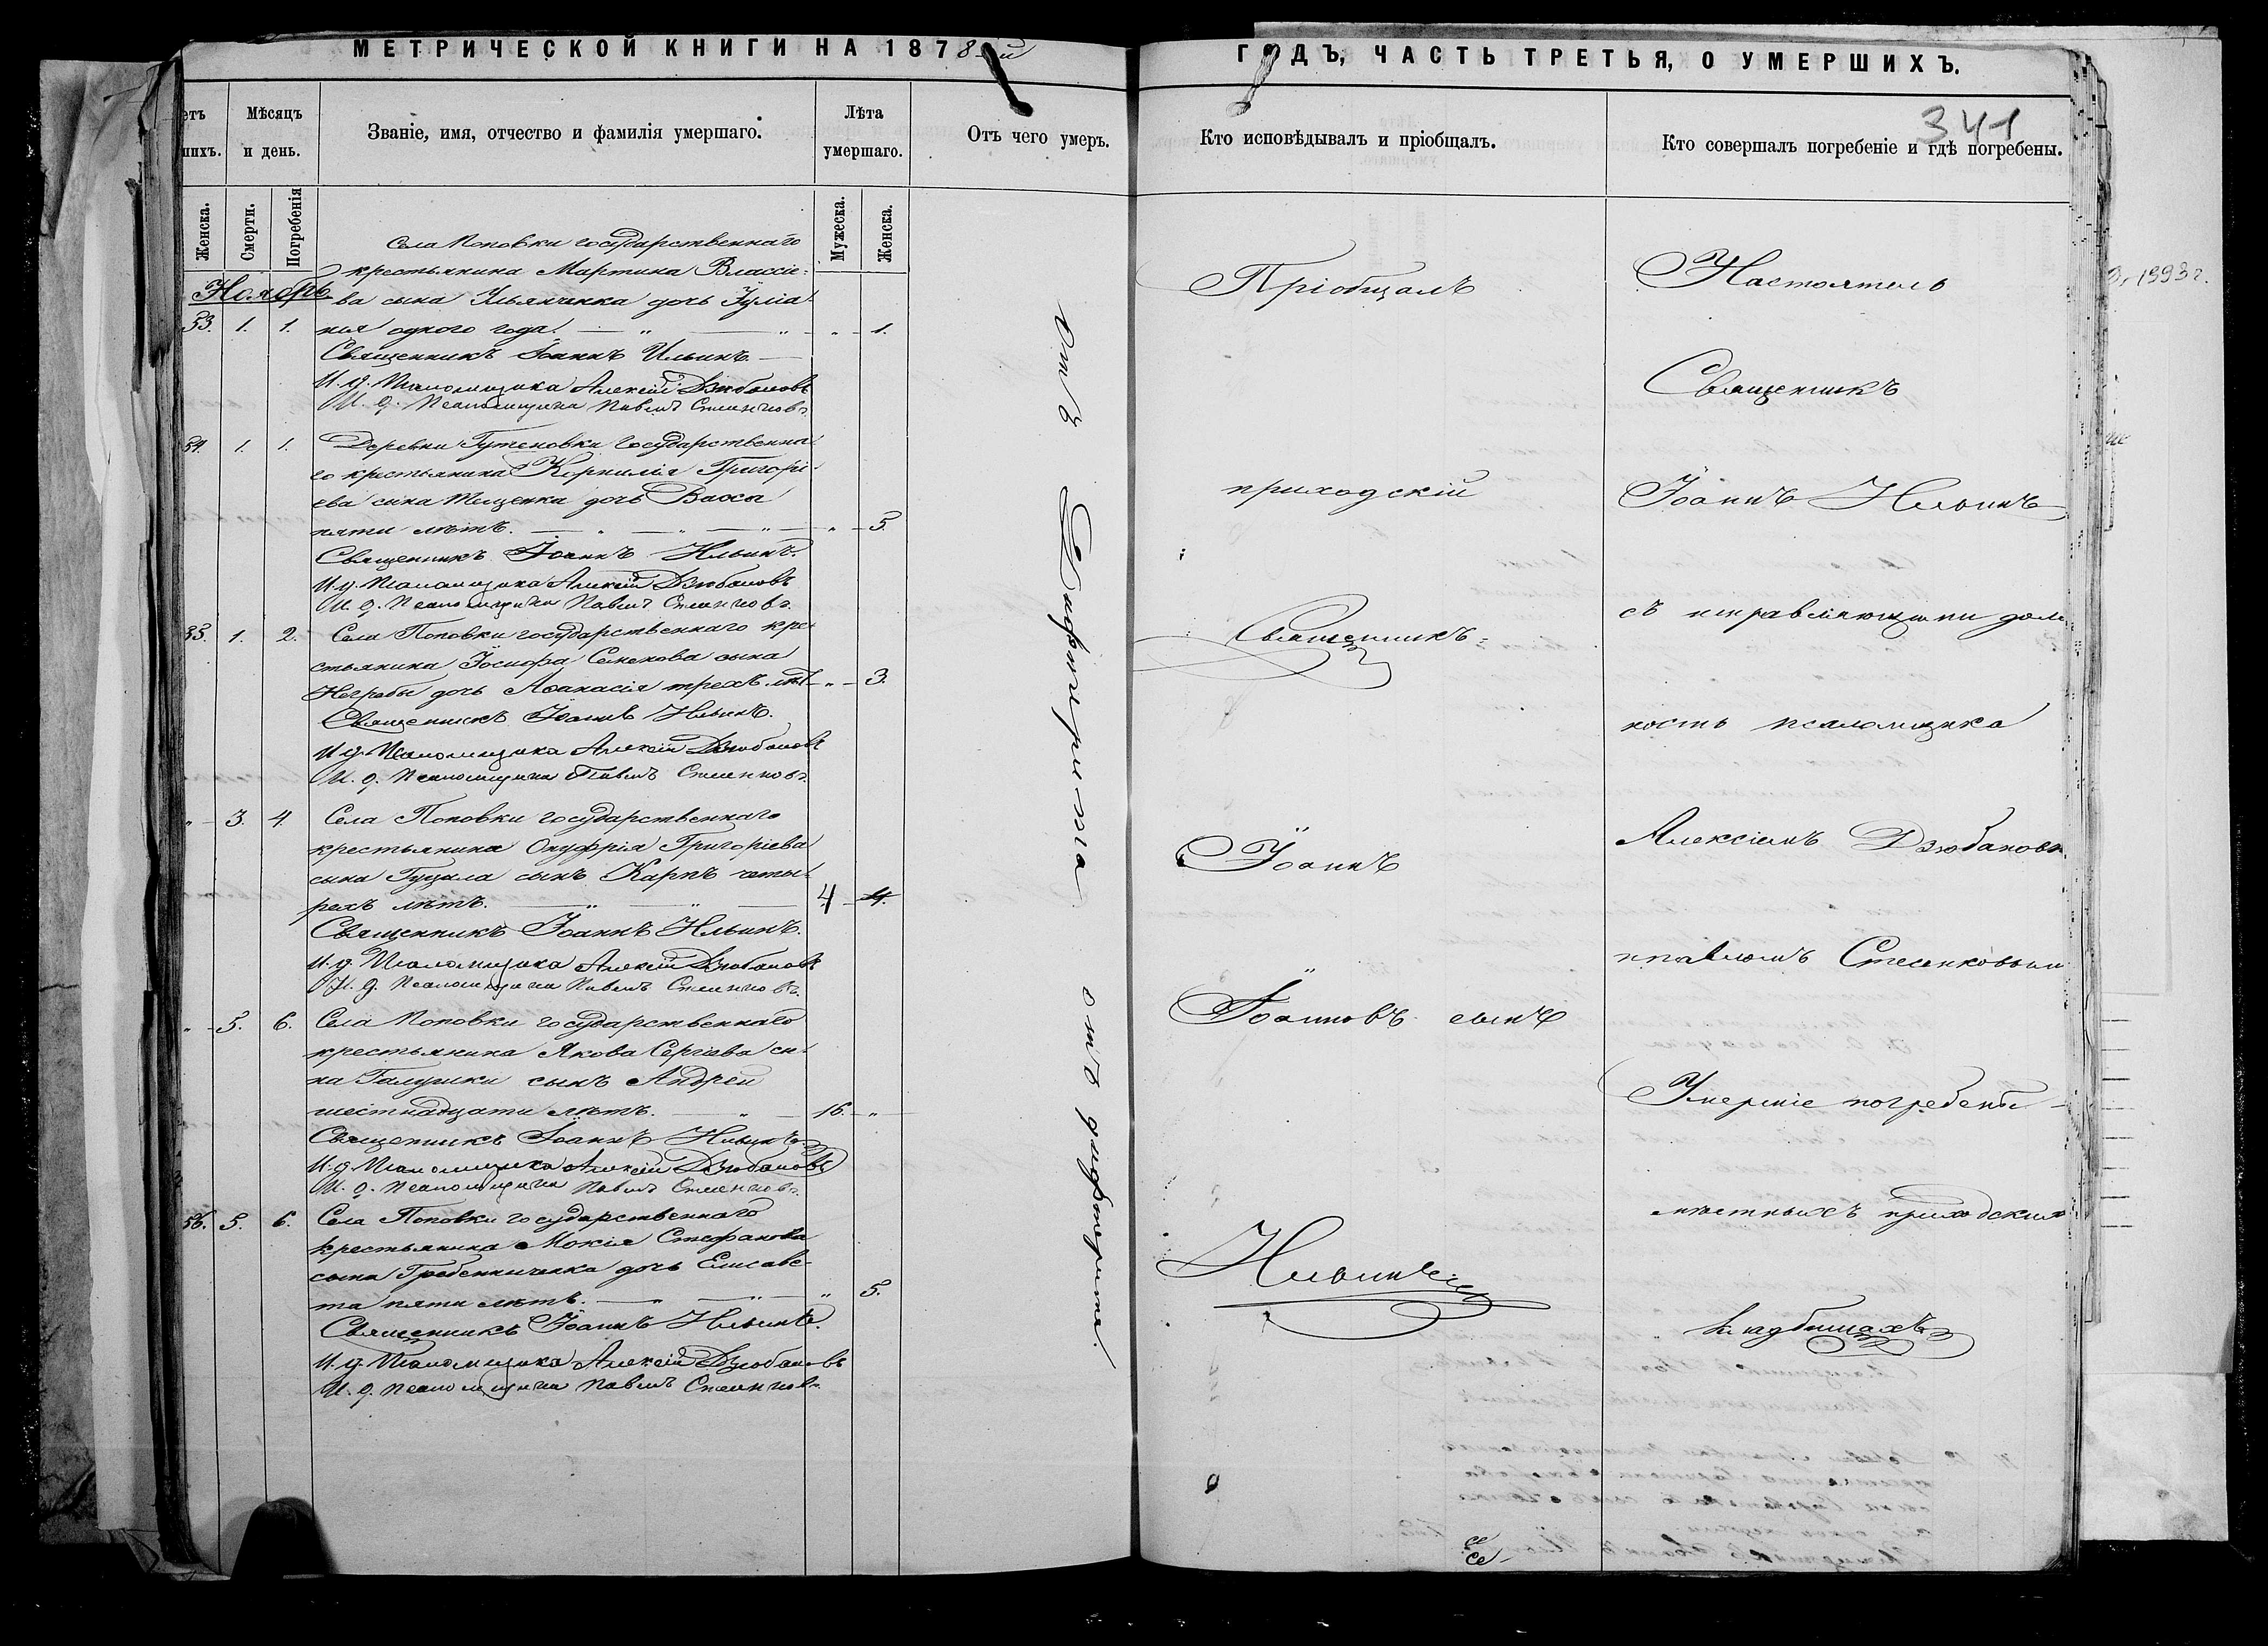 МЕТРИЧЕСКОЙ КНИГИ НА 1878й
ГОДЪ, ЧАСТЬ ТРЕТЬЯ, О УМЕРШИХЪ.
341
Мѣсяцъ и день.
Званіе, имя, отчество и фамилія умершаго.
Лѣта умершаго.
Отъ чего умеръ.
Кто исповѣдывалъ и пріобщалъ.
Кто совершалъ погребеніе и гдѣ погребены.
Женска.
Смерти.
Погребенія
Мужеска.
Женска.
Ноябрь
Села Поповки государственнаго
крестьянина Мартина Влассіе-
ва сына Ильянченка дочь Іуліа-
53. 1. 1. нія одного года. " 1.
Священникъ Іоаннъ Ильинъ.
И. д. Псаломщика Алексій Дзюбановъ
И. д. Псаломщика Павелъ Стеенковъ.
54. 1. 1. Деревни Гутеновки государственна-
го крестьянина Корнилія Григорі-
ева сына Тещенка дочь Васса
пяти лѣтъ. " 5.
Священникъ Іоаннъ Ильинъ.
И. д. Псаломщика Алексій Дзюбановъ
И. д. Псаломщика Павелъ Стеенковъ.
55. 1. 2. Села Поповки государственнаго кре-
стьянина Іосифа Семенова сына
Негребы дочь Аѳанасія трехъ лѣт " 3.
Священникъ Іоаннъ Ильинъ.
И. д. Псаломщика Алексій Дзюбановъ
И. д. Псаломщика Павелъ Стеенковъ.
" 3. 4. Села Поповки государственнаго
крестьянина Онуфрія Григоріева
сына Гуцала сынъ Карпъ четы-
рехъ лѣтъ. 4 4.
Священникъ Іоаннъ Ильинъ.
И. д. Псаломщика Алексій Дзюбановъ
И. д. Псаломщика Павелъ Стеенковъ.
" 5. 6. Села Поповки государственнаго
крестьянина Якова Сергіева сы-
на Галушки сынъ Андрей
шестнадцати лѣтъ. 16. "
Священникъ Іоаннъ Ильинъ
И. д. Псаломщика Алексій Дзюбановъ
И. д. Псаломщика Павелъ Стеенковъ.
56. 5. 6. Села Поповки государственнаго
крестьянина Мокія Стефанова
сына Гребенниченка дочь Елисаве-
та пяти лѣтъ. " 5.
Священникъ Іоаннъ Ильинъ.
И. д. Псаломщика Алексій Дзюбановъ
И. д. Псаломщика Павелъ Стеенковъ.
Отъ Дифтерита
отъ дифтерита.
Пріобщалъ
приходскій
Священникъ
Іоаннъ
Іоанновъ сынъ
Ильинъ
Настоятель
Священникъ
Іоаннъ Ильинъ
съ исправляющими долж
ность псаломщика
Алексіемъ Дзюбановы
и Павломъ Стеенковым
Умершіе погребены
мѣстныхъ приходских
кладбищахъ
1993 г.